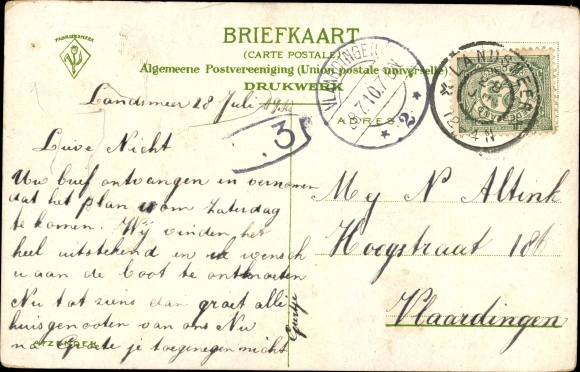 FABRIEKSMERK
BRIEFKAART
(CARTE POSTALE)
Algemeene Postvereeniging (Union postale universelle)
DRUKWERK
ADRES
VLAARDINGEN
28.7.10.7
2
LANDSMEER
3
Landsmeer 28 Juli 1910
Lieve Nicht
Uw brief ontvangen en vernomen
dat het plan is om Zaterdag
te komen. Wij vinden het
heel uitstekend en ik wensch
u aan de boot te ontmoeten
Nu tot ziens dan groet alle
huisgenooten van ons Nu
na Groete je toegenegen nicht
Geertje
AFZENDER
Mej N Altink
Hoogstraat 186
Vlaardingen